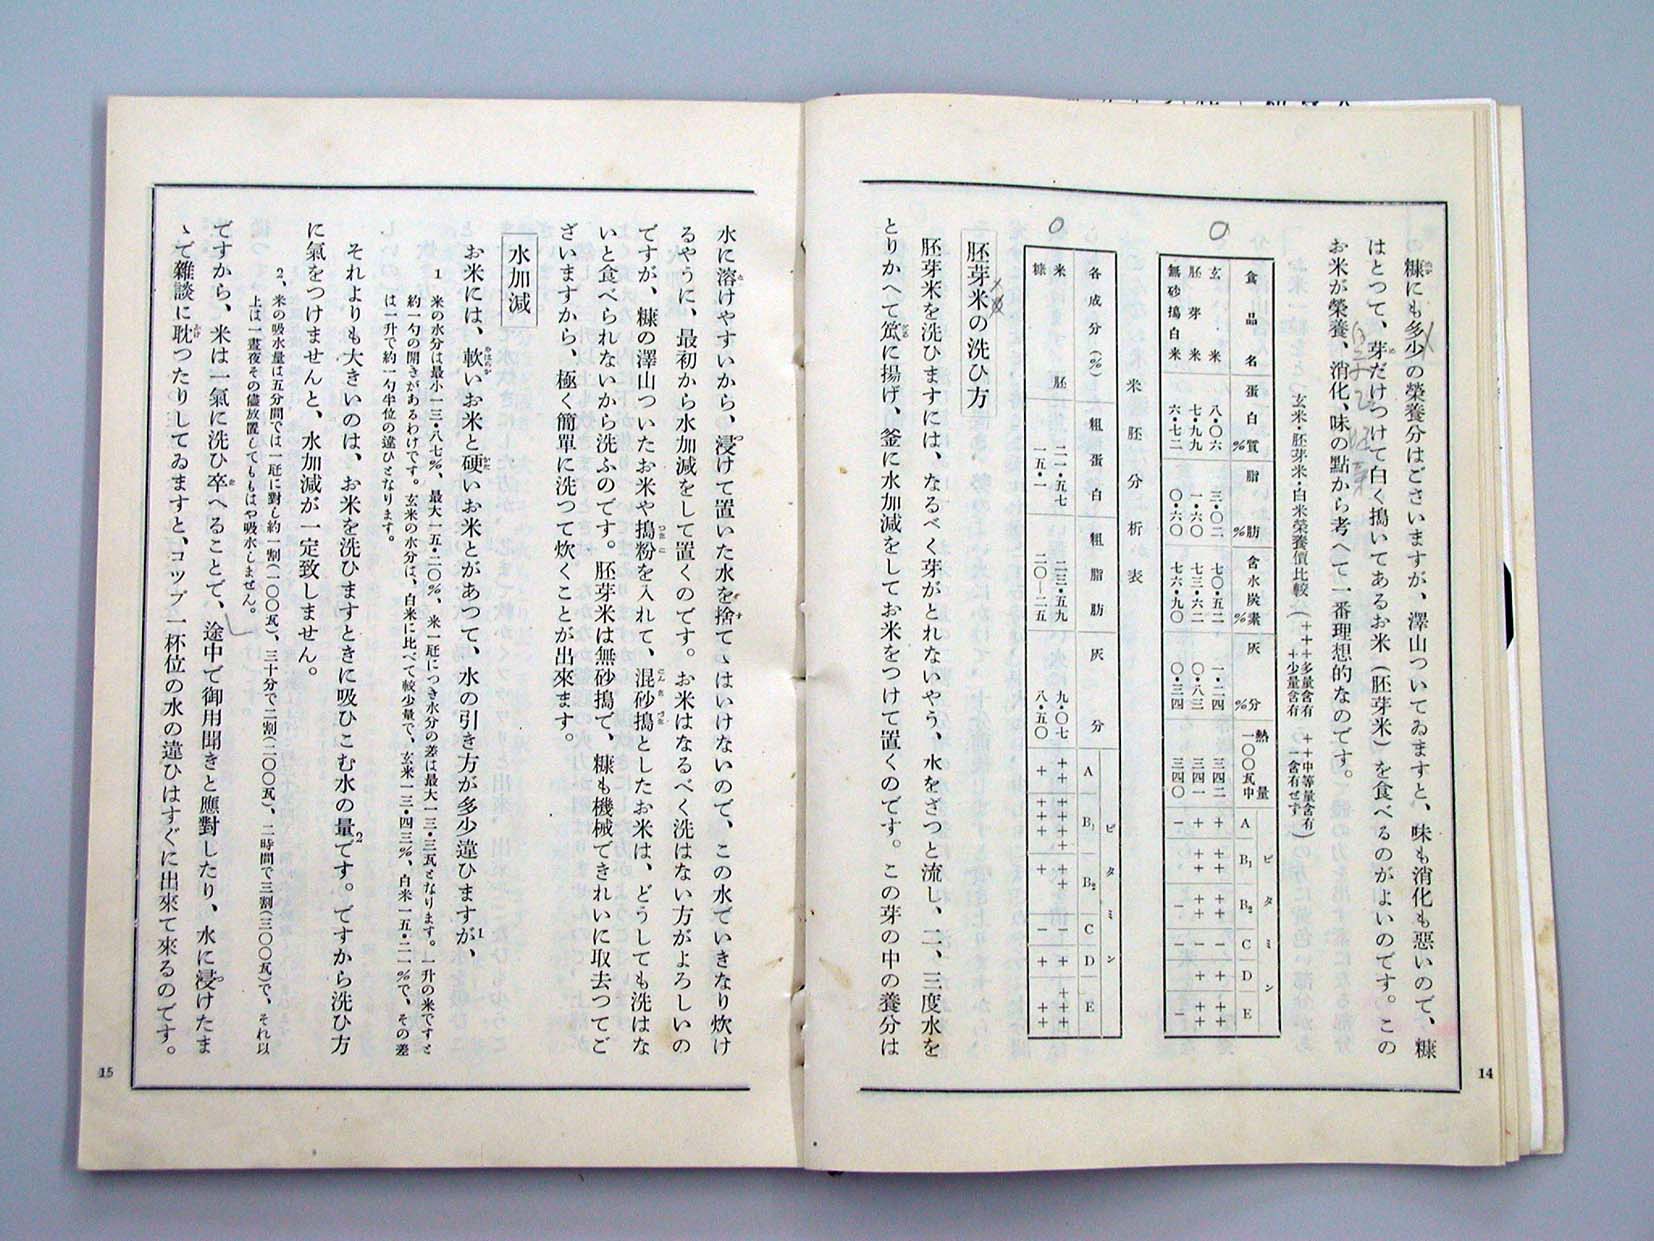 糠にも多少の榮養分はございますが、澤山ついてゐますと、味も消化も惡いので、糠
はとつて、芽だけつけて白く搗いてあるお米（胚芽米）を食べるのがよいのです。この
お米が榮養、消化、味の點から考へて一番理想的なのです。
玄米・胚芽米・白米榮養價比較（＋＋＋多量含有 ＋＋中等量含有 ＋少量含有 －含有せず）
食品名 蛋白質% 脂肪% 含水炭素% 灰分% 熱量一〇〇瓦中 ビタミン A B₁ B₂ C D E
玄米 八・〇六 三・〇二 七〇・五二 一・二四 三四二 ＋ ＋＋ ＋＋ － ＋＋ ＋＋
胚芽米 七・九九 一・六〇 七三・六二 〇・八三 三四一 ＋ ＋＋ ＋＋ － ＋＋ ＋＋
無砂搗白米 六・七二 〇・六〇 七六・九〇 〇・三四 三四〇 － － － － － －
米胚分析表
各成分（%） 粗蛋白 粗脂肪 灰分 ビタミン A B₁ B₂ C D E
米胚 二一・五七 二三・五九 九・〇七 ＋＋ ＋＋＋＋ ＋＋ － ＋ ＋＋＋
糠 一五・一 二〇―二五 八・五〇 ＋ ＋＋＋ ＋ － ＋ ＋＋
胚芽米の洗ひ方
胚芽米を洗ひますには、なるべく芽がとれないやう、水をざつと流し、二、三度水を
とりかへて笊に揚げ、釜に水加減をしてお米をつけて置くのです。この芽の中の養分は
14
水に溶けやすいから、浸けて置いた水を捨てゝはいけないので、この水でいきなり炊け
るやうに、最初から水加減をして置くのです。お米はなるべく洗はない方がよろしいの
ですが、糠の澤山ついたお米や搗粉を入れて、混砂搗としたお米は、どうしても洗はな
いと食べられないから洗ふのです。胚芽米は無砂搗で、糠も機械できれいに取去つてご
ざいますから、極く簡單に洗つて炊くことが出來ます。
水加減
お米には、軟いお米と硬いお米とがあつて、水の引き方が多少違ひますが、1
1 米の水分は最小一三・八七%、最大一五・二〇%、米一瓩につき水分の差は最大一三・三瓦となります。一升の米ですと
約一勺の開きがあるわけです。玄米の水分は、白米に比べて較少量で、玄米一三・四三%、白米一五・二一%で、その差
は一升で約一勺半位の違ひとなります。
それよりも大きいのは、お米を洗ひますときに吸ひこむ水の量2です。ですから洗ひ方
に氣をつけませんと、水加減が一定致しません。
2、米の吸水量は五分間では一瓩に對し約一割（一〇〇瓦）、三十分で二割（二〇〇瓦）、二時間で三割（三〇〇瓦）で、それ以
上は一晝夜その儘放置してももはや吸水しません。
ですから、米は一氣に洗ひ卒へることで、途中で御用聞きと應對したり、水に浸けたま
ゝで雜談に耽つたりしてゐますと、コップ一杯位の水の違ひはすぐに出來て來るのです。
15